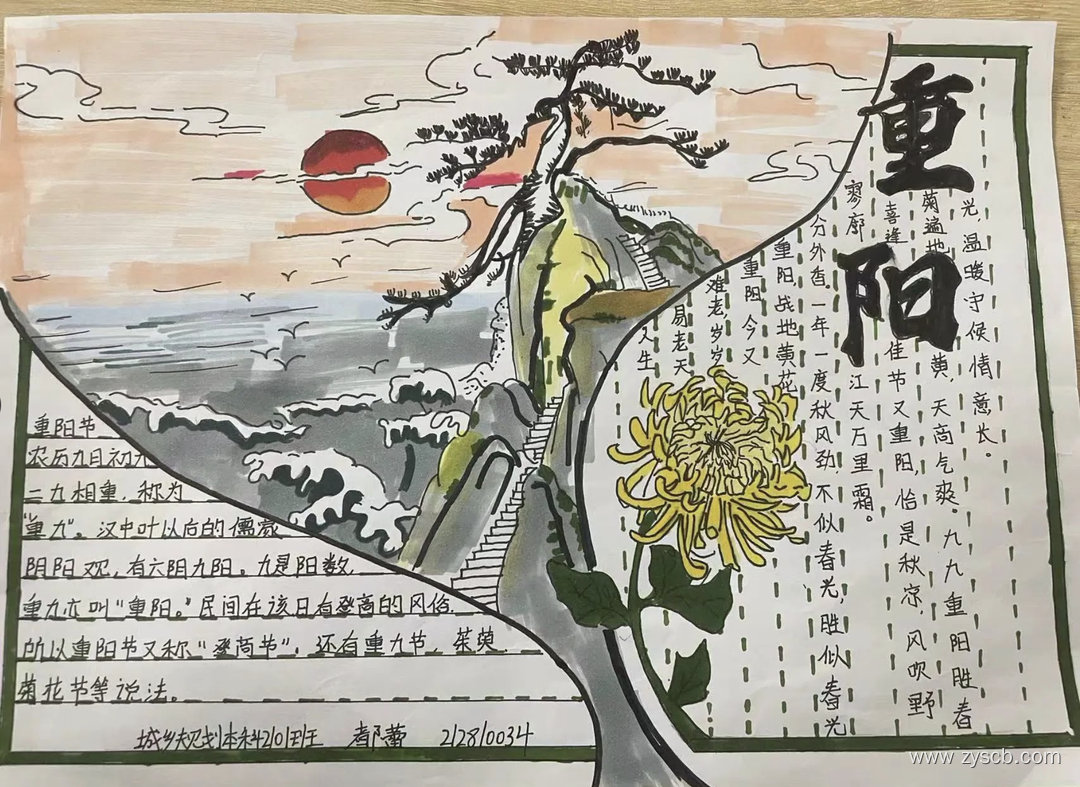 重阳
人生
易老天
难老岁岁
重阳，今又
重阳，战地黄花
分外香一年一度秋风劲，不似春光，胜似春光
寥廓江天万里霜。
喜逢佳节又重阳，恰是秋凉，风吹野
菊遍地黄，天高气爽。九九重阳胜春
光，温暖守候情意长。
重阳节
农历九月初九
二九相重，称为
“重九”。汉中叶以后的儒家
阴阳观，有六阴九阳。九是阳数，
重九亦叫“重阳。”民间在该日有登高的风俗
所以重阳节又称“登高节”。还有重九节、茱萸
菊花节等说法。
城乡规划本科2101班 蕾 212810034
www.zyscb.com